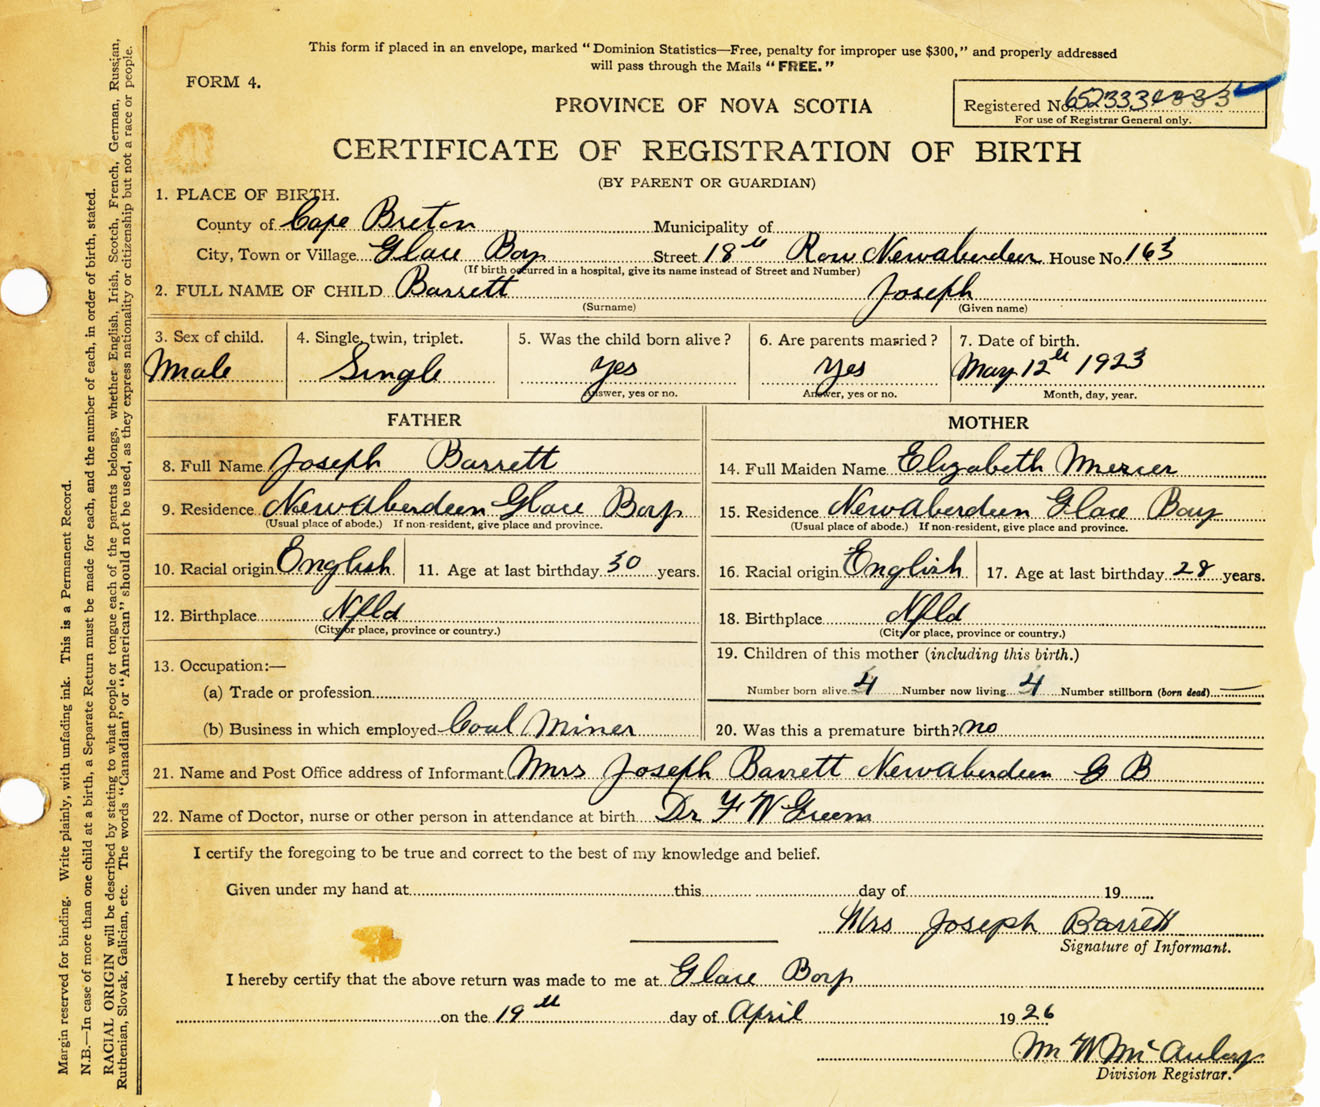 This form if placed in an envelope, marked "Dominion Statistics—Free, penalty for improper use $300," and properly addressed
will pass through the Mails "FREE."
FORM 4.
PROVINCE OF NOVA SCOTIA
Registered No.
For use of Registrar General only.
CERTIFICATE OF REGISTRATION OF BIRTH
(BY PARENT OR GUARDIAN)
1. PLACE OF BIRTH.
County of Cape Breton Municipality of
City, Town or Village Glace Bay Street 18th Row Newaberdeen House No. 163
(If birth occurred in a hospital, give its name instead of Street and Number)
2. FULL NAME OF CHILD Barrett Joseph
(Surname) (Given name)
3. Sex of child. 4. Single, twin, triplet. 5. Was the child born alive? 6. Are parents married? 7. Date of birth.
Male Single yes yes May 12th 1923
Answer, yes or no. Answer, yes or no. Month, day, year.
FATHER MOTHER
8. Full Name Joseph Barrett 14. Full Maiden Name Elizabeth Mercer
9. Residence NewAberdeen Glace Bay 15. Residence NewAberdeen Glace Bay
(Usual place of abode.) If non-resident, give place and province. (Usual place of abode.) If non-resident, give place and province.
10. Racial origin English 11. Age at last birthday 30 years. 16. Racial origin English 17. Age at last birthday 28 years.
12. Birthplace Nfld 18. Birthplace Nfld
(City or place, province or country.) (City or place, province or country.)
13. Occupation:— 19. Children of this mother (including this birth.)
(a) Trade or profession Number born alive 4 Number now living 4 Number stillborn (born dead) —
(b) Business in which employed Coal Miner 20. Was this a premature birth? no
21. Name and Post Office address of Informant Mrs Joseph Barrett Newaberdeen G B
22. Name of Doctor, nurse or other person in attendance at birth Dr F W Green
I certify the foregoing to be true and correct to the best of my knowledge and belief.
Given under my hand at this day of 19
Mrs Joseph Barrett
Signature of Informant.
I hereby certify that the above return was made to me at Glace Bay
on the 19th day of April 1926
Wm W McAulay
Division Registrar.
Margin reserved for binding. Write plainly, with unfading ink. This is a Permanent Record.
N.B.—In case of more than one child at a birth, a Separate Return must be made for each, and the number of each, in order of birth, stated.
RACIAL ORIGIN will be described by stating to what people or tongue each of the parents belongs, whether English, Irish, Scotch, French, German, Russian,
Ruthenian, Slovak, Galician, etc. The words "Canadian" or "American" should not be used, as they express nationality or citizenship but not a race or people.